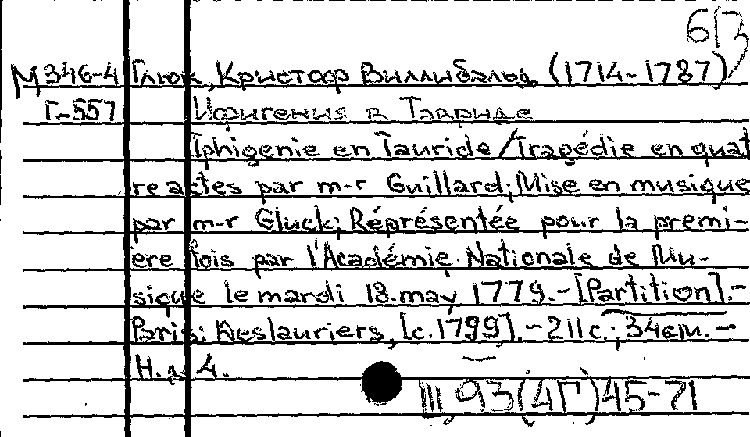 613
М 346-4 Глюк, Кристоф Виллибальд (1714-1787)
Г-557 Ифигения в Тавриде
Iphigenie en Tauride / Tragédie en quat
re actes par m-r Guillard; Mise en musique
par m-r Gluck; Réprésentée pour la premi-
ere fois par l'Académie Nationale de Mu-
sique le mardi 18. may 1779. - [Partition]. -
Paris: Deslauriers, [c. 1799]. - 211 с.; 34 см. -
Н. д. 4.
III, 93 (4Г) 45-71